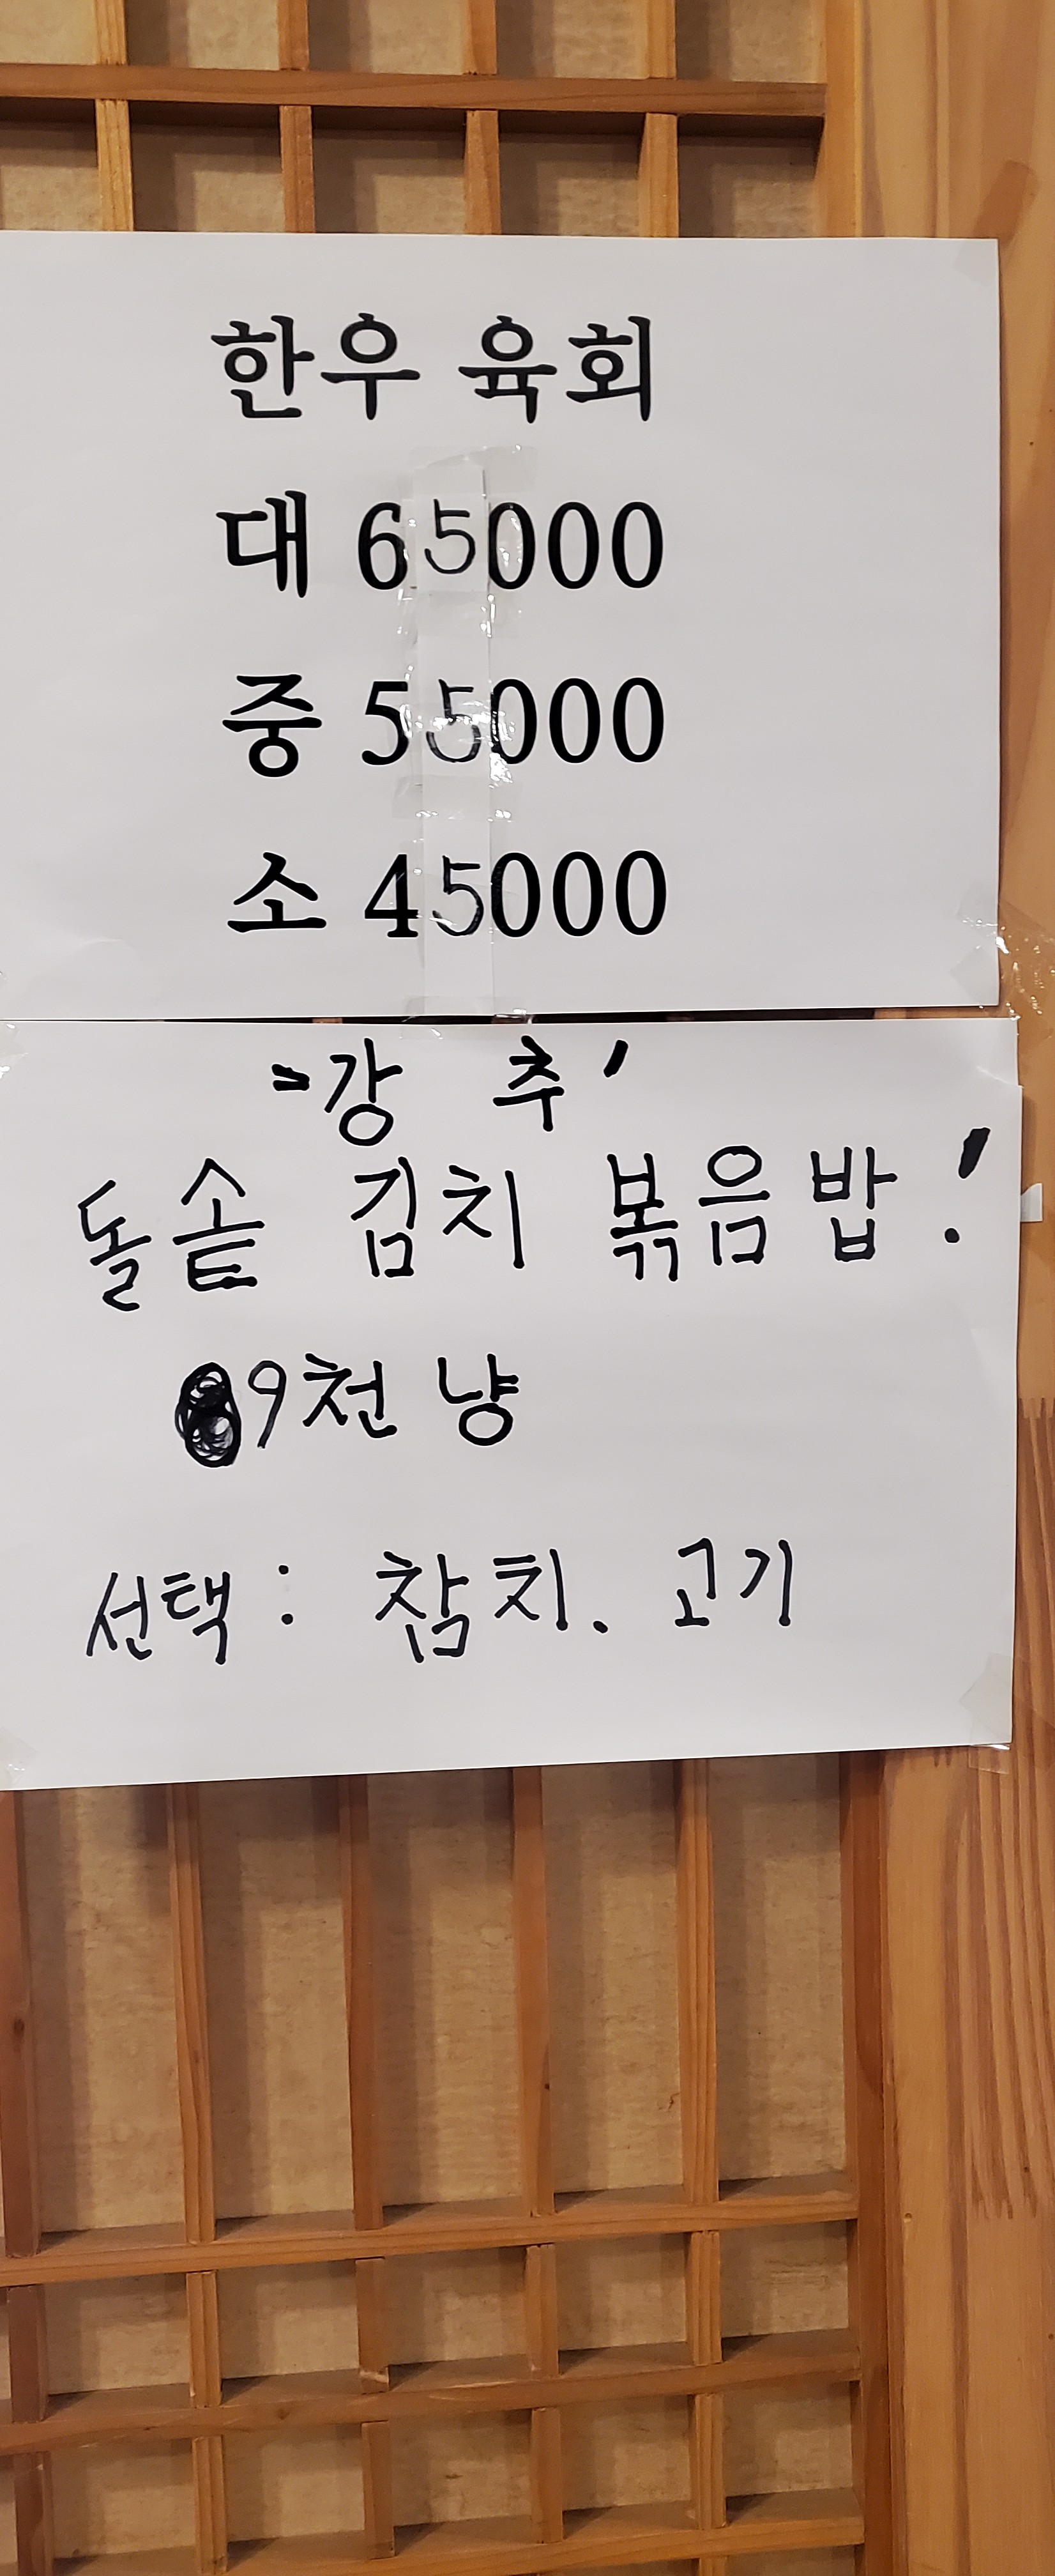 한우 육회
대 65000
중 55000
소 45000
"강 추'
돌솥 김치 볶음밥!
9천냥
선택: 참치. 고기